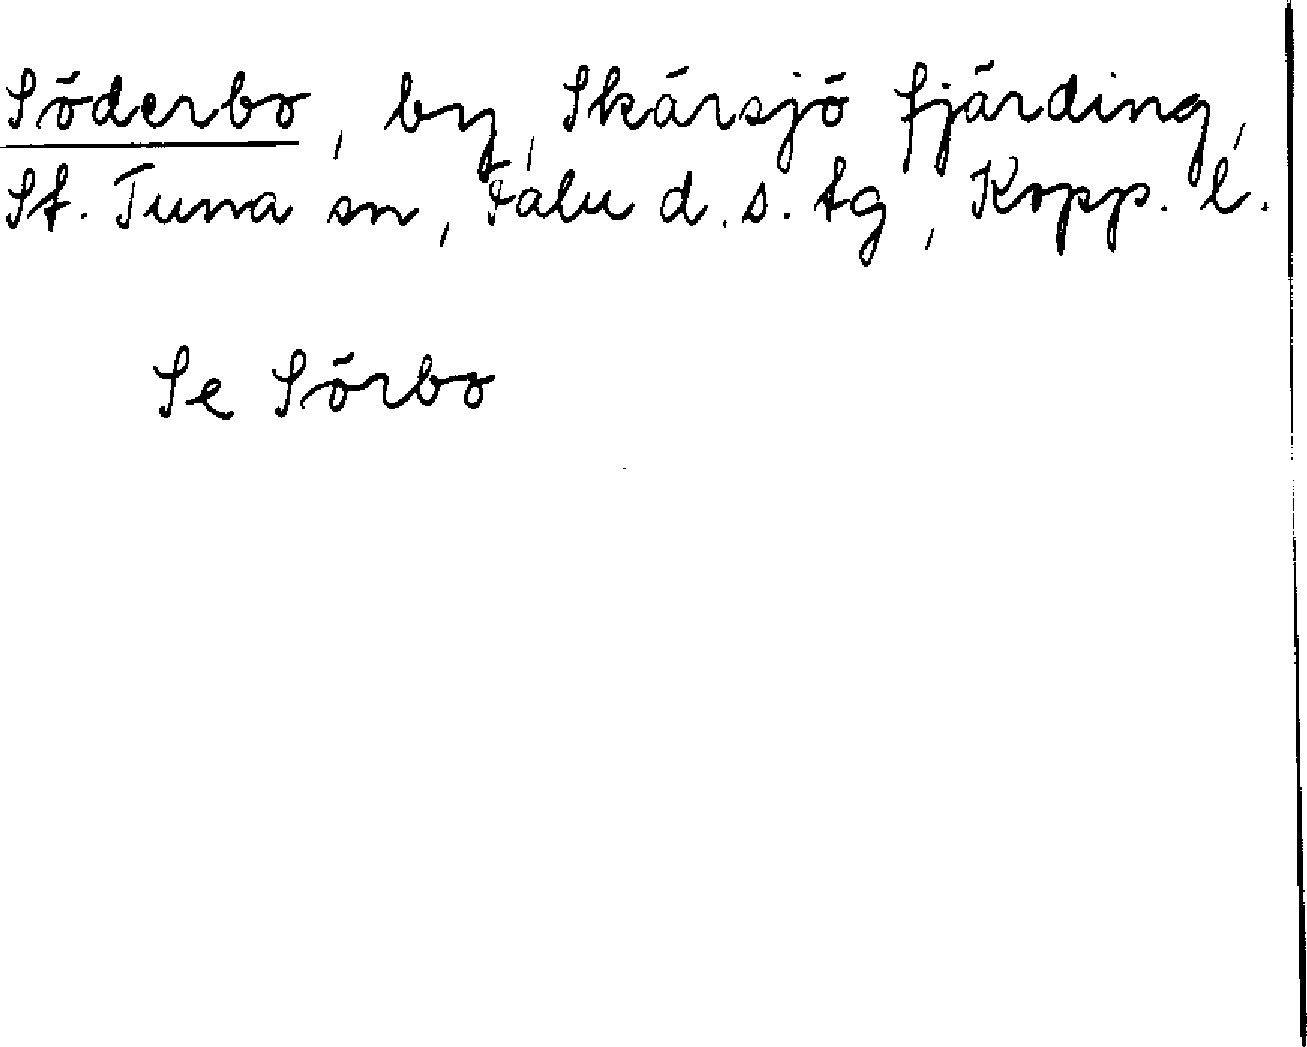 Söderbo, by, Skärsjö fjärding,
St. Tuna sn, Falu d. s. tg, Kopp. l.
Se Sörbo